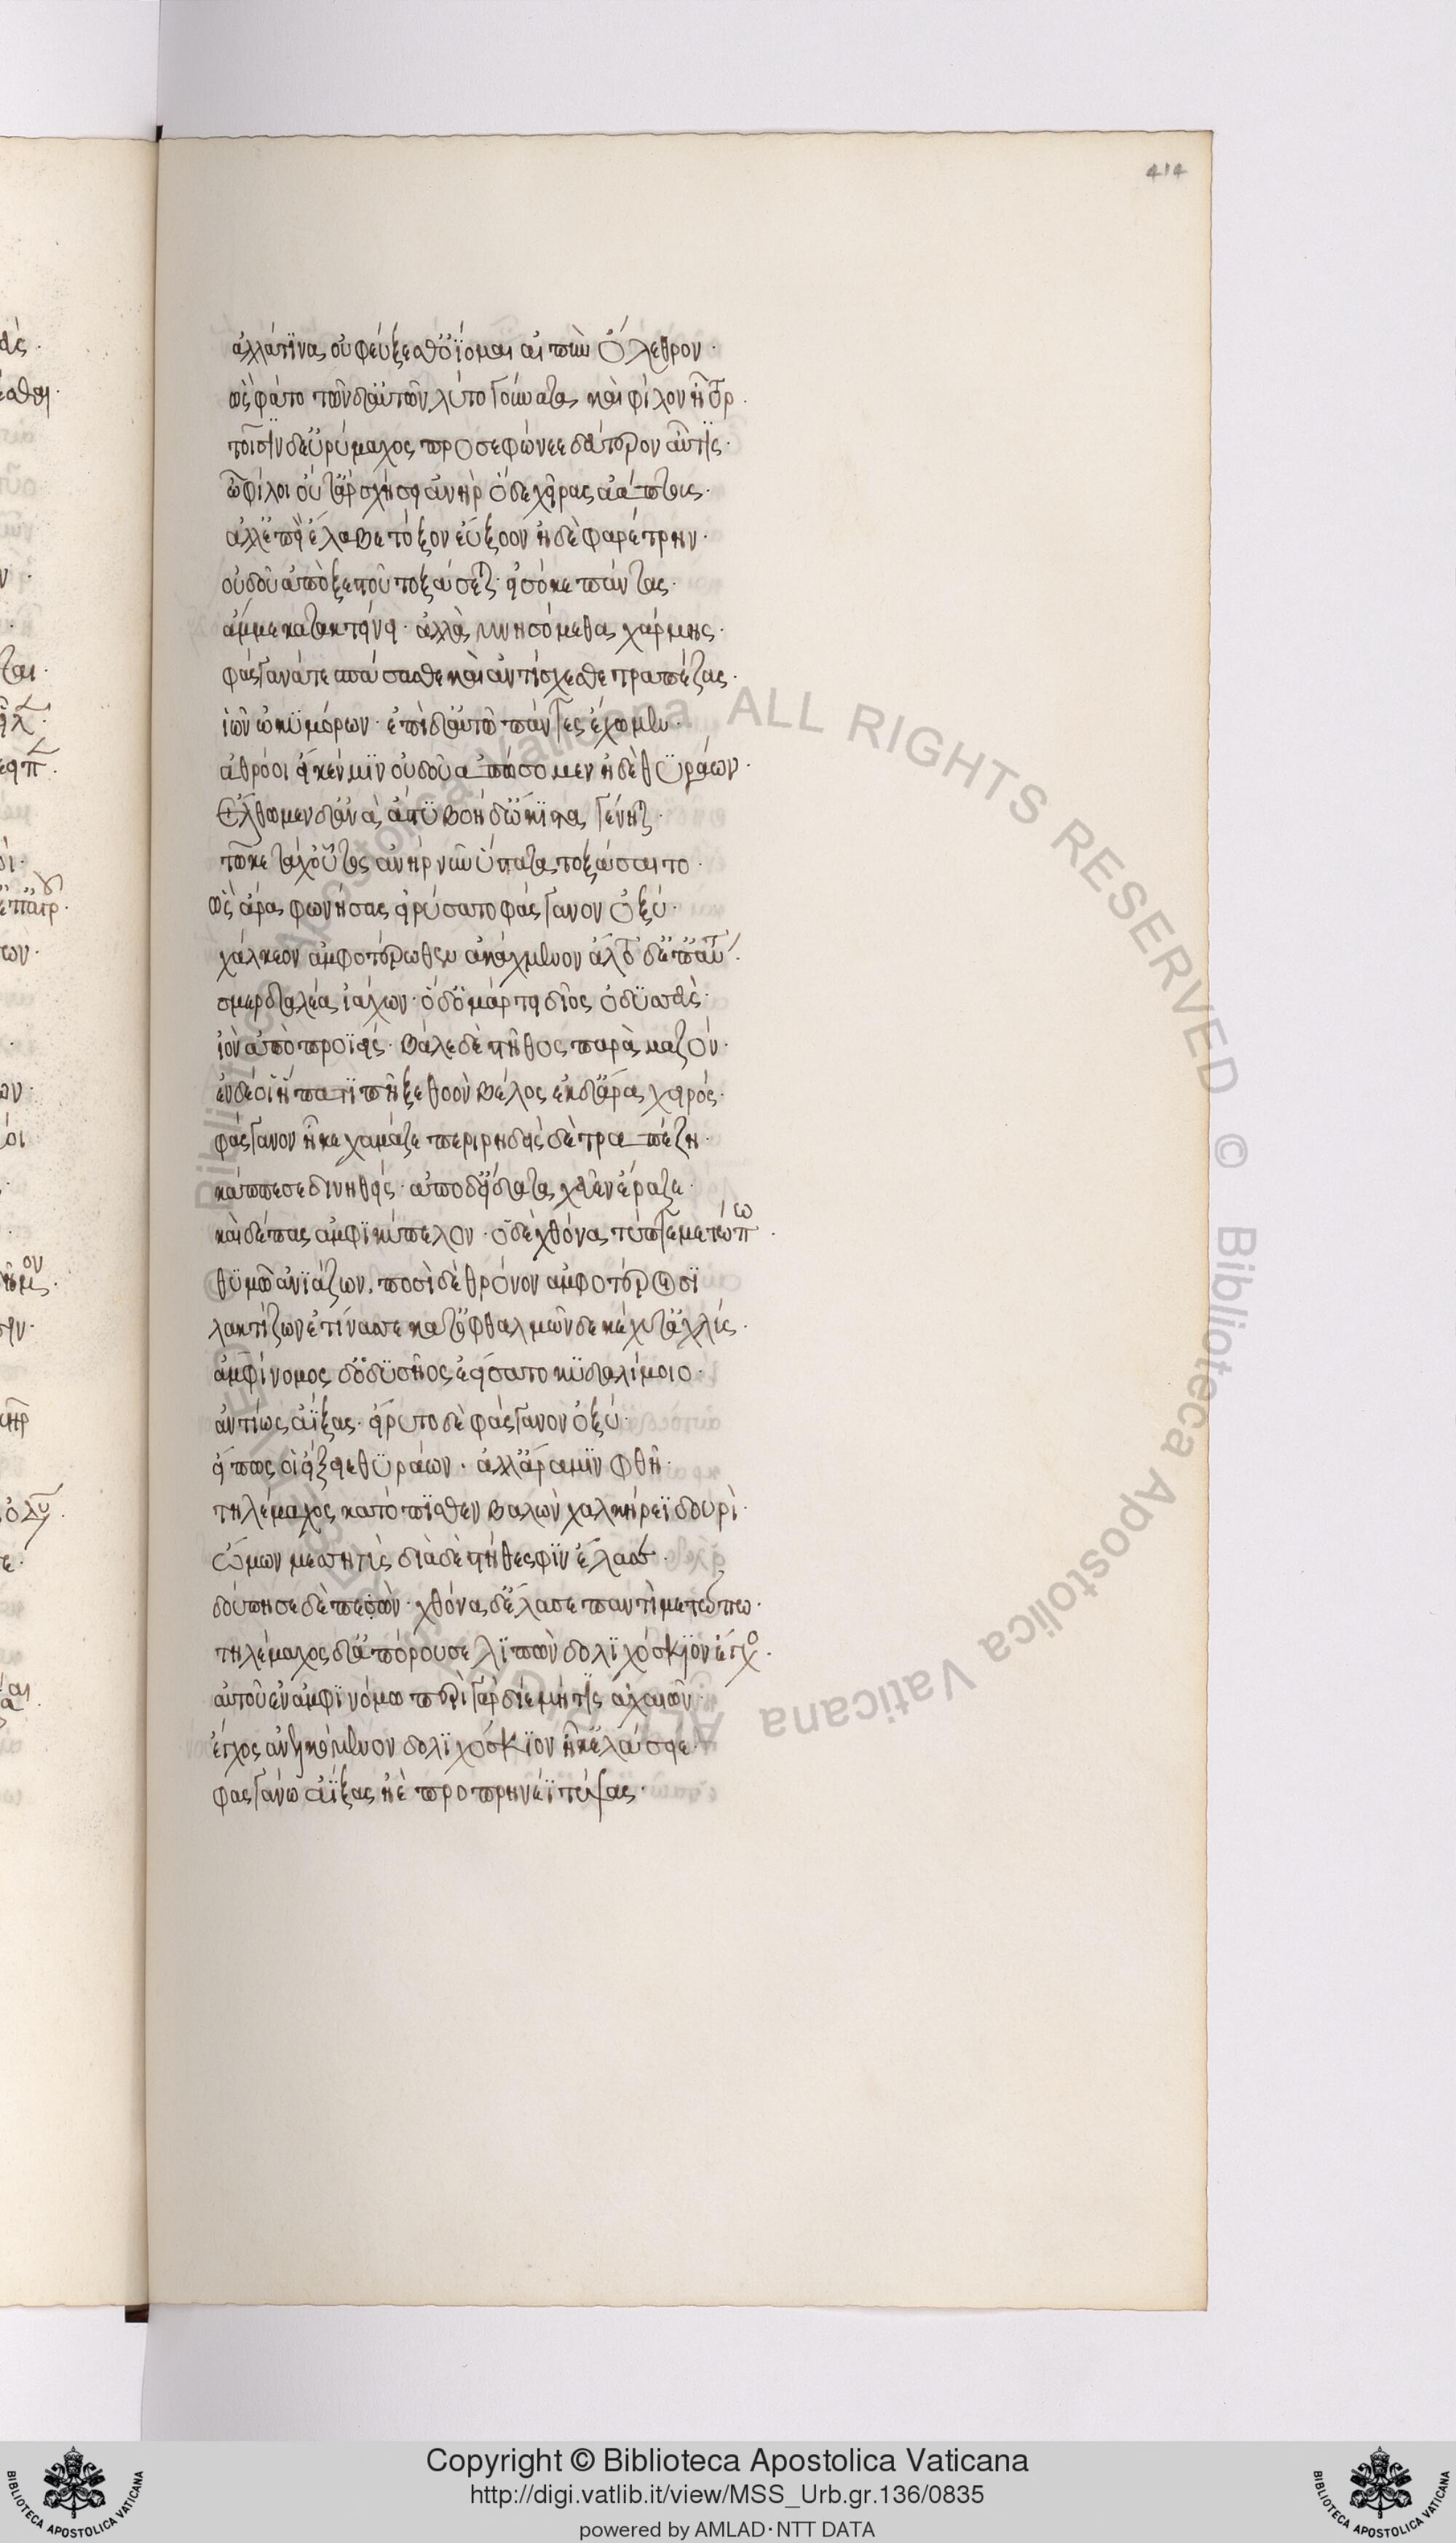 414
ἀλλάτινα οὐ φεύξεσθ' ὀΐομαι αἰπὺν ὄλεθρον·
ὣς φάτο τῶν δ' αὐτοῦ λύτο γούνατα καὶ φίλον ἦτορ·
τοῖσιν δ' εὐρύμαχος προσεφώνεε δεύτερον αὖτις·
ὦ φίλοι οὐ γὰρ σχήσει ἀνὴρ ὅδε χεῖρας ἀάπτους·
ἀλλ' ἐπεὶ ἔλαβε τόξον ἐΰξοον ἠδὲ φαρέτρην·
οὐδοῦ ἀπὸ ξεστοῦ τοξάσεται· εἰσόκε πάντας·
ἄμμε κατακτείνει· ἀλλὰ μνησόμεθα χάρμης·
φάσγανά τε σπάσασθε καὶ ἀντίσχεσθε τραπέζας·
ἰῶν ὠκυμόρων· ἐπὶ δ' αὐτῷ πάντες ἔχωμεν·
ἀθρόοι εἴ κέν μιν οὐδοῦ ἀπώσομεν ἠδὲ θυράων·
ἔλθωμεν δ' ἀνὰ ἄστυ βοὴ δ' ὤκιστα γένηται·
τῷ κε τάχ' οὗτος ἀνὴρ νῦν ὕστατα τοξάσαιτο·
ὣς ἄρα φωνήσας εἰρύσατο φάσγανον ὀξύ·
χάλκεον ἀμφοτέρωθεν ἀκαχμένον ἆλτο δ' ἐπ' αὐτ·
σμερδαλέα ἰάχων· ὁ δ' ὁμαρτῆ δῖος ὀδυσσεὺς·
ἰὸν ἀποπροϊείς· βάλε δὲ στῆθος παρὰ μαζόν·
ἐν δέ οἱ ἥπατι πῆξε θοὸν βέλος ἐκ δ' ἄρα χειρός·
φάσγανον ἧκε χαμᾶζε περιρρηδὴς δὲ τραπέζῃ·
κάππεσε δινηθείς· ἀπὸ δ' εἴδατα χεῦεν ἔραζε·
καὶ δέπας ἀμφικύπελλον· ὁ δὲ χθόνα τύπτε μετώπω·
θυμῷ ἀνιάζων. ποσὶ δὲ θρόνον ἀμφοτέροισι
λακτίζων ἐτίνασσε κατ' ὀφθαλμῶν δε κέχυτ' ἀχλύς·
ἀμφίνομος δ' ὀδυσῆος ἐείσατο κυδαλίμοιο·
ἀντίως ἀΐξας· εἴρυτο δὲ φάσγανον ὀξύ·
εἴ πως οἱ εἴξειε θυράων· ἀλλ' ἄρα μιν φθῆ·
τηλέμαχος κατόπισθεν βαλὼν χαλκήρεϊ δουρὶ·
ὤμων μεσσηγὺς διὰ δὲ στήθεσφιν ἔλασσ·
δούπησε δὲ πεσὼν· χθόνα δ' ἔλασε παντὶ μετώπω·
τηλέμαχος δ' ἀπόρουσε λιπὼν δολιχόσκιον ἔγχο·
αὐτοῦ ἐν ἀμφινόμω περὶ γὰρ δίε μή τις ἀχαιῶν·
ἔγχος ἀνελκόμενον δολιχόσκιον ἢ ἐλάσειε·
φασγάνω ἀΐξας ἠὲ προπρηνέϊ τύψας·
Copyright © Biblioteca Apostolica Vaticana
http://digi.vatlib.it/view/MSS_Urb.gr.136/0835
powered by AMLAD·NTT DATA